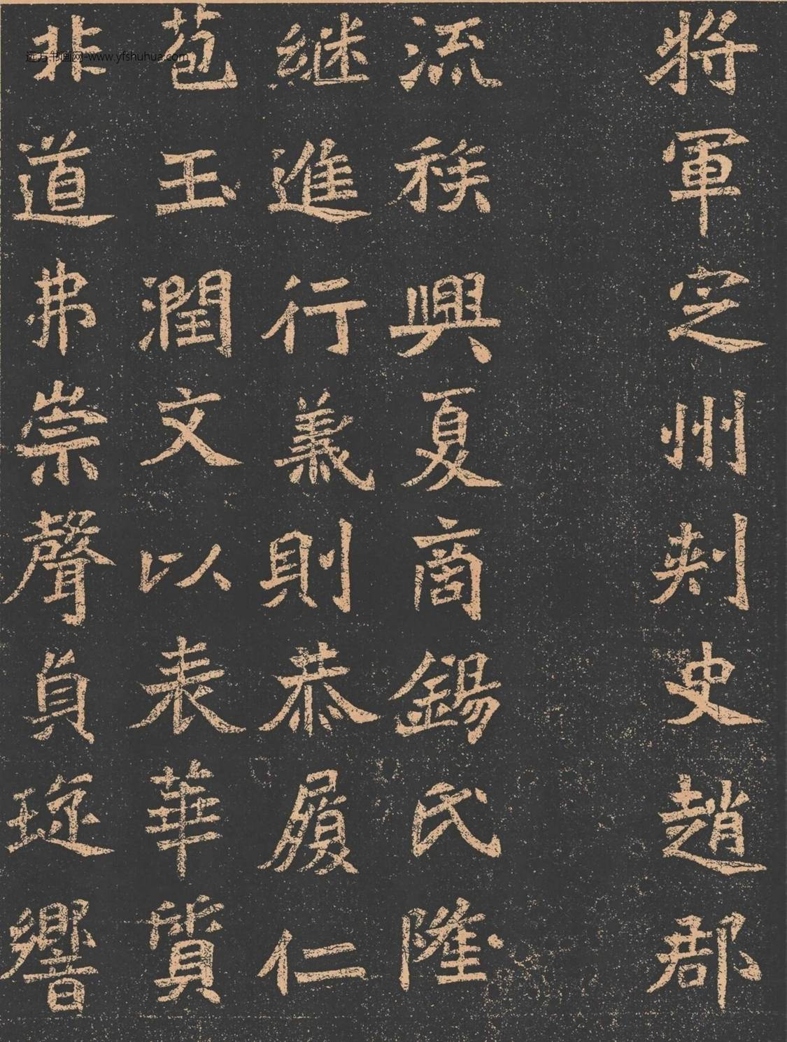 將軍定州刾史趙郡
流稊興夏商錫民隆
継進行義則恭履仁
苞玉潤文以表華質
非道弗崇聲貞珎響
www.yfshuhua.com